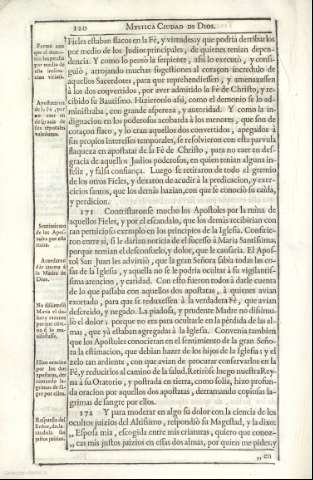 120 MYSTICA CIUDAD DE DIOS.
Fieles estaban flacos en la Fè, y virtudes; y que podria derribarlos
por medio de los Judios principales, de quienes tenian depen-
dencia. Y como lo pensò la serpiente, assi lo executò, y consi-
guiò, arrojando muchas sugestiones al coraçon incredulo de
aquellos Sacerdotes, para que reprehendiessen, y amenazassen
à los dos convertidos, por aver admitido la Fè de Christo, y re-
cibido su Bautismo. Hizieronlo assi, como el demonio se lo ad-
ministraba, con grande aspereza, y autoridad. Y como la in-
dignacion en los poderosos acobarda à los menores, que son de
coraçon flaco, y lo eran aquellos dos convertidos, apegados à
sus proprios interesses temporales, se resolvieron con esta parvula
flaqueza en apostatar de la Fè de Christo, para no caer en des-
gracia de aquellos Judios poderosos, en quien tenian alguna in-
feliz, y falsa confiança. Luego se retiraron de todo el gremio
de los otros Fieles, y dexaron de acudir à la predicacion, y exer-
cicios santos, que los demàs hazian, con que se conociò su caìda,
y perdicion.
171 Contristaronse mucho los Apostoles por la ruìna de
aquellos Fieles, y por el escandalo, que los demàs recibirian con
tan pernicioso exemplo en los principios de la Iglesia. Confirie-
ron entre si, si le darian noticia del sucesso à Maria Santissima,
porque temian el desconsuelo, y dolor, que le causaria. El Apos-
tol San Juan les advirtiò, que la gran Señora sabia todas las co-
sas de la Iglesia, y aquella no se le podria ocultar à su vigilantis-
sima atencion, y caridad. Con esto fueron todos à darle cuenta
de lo que passaba con aquellos dos apostatas, à quienes avian
exortado, para que se reduxessen à la verdadera Fè, que avian
descreido, y negado. La piadosa, y prudente Madre no dissimu-
lò el dolor; porque no era para ocultarle en la pèrdida de las al-
mas, que yà estaban agregadas à la Iglesia. Convenia tambien
que los Apostoles conociessen en el sentimiento de la gran Seño-
ra la estimacion, que debian hazer de los hijos de la Iglesia, y el
zelo tan ardiente, con que avian de procurar conservarlos en la
Fè, y reducirlos al camino de la salud. Retiròse luego nuestra Rey-
na à su Oratorio, y postrada en tierra, como solia, hizo profun-
da oracion por aquellos dos apostatas, derramando copiosas la-
grimas de sangre por ellos.
172 Y para moderar en algo su dolor con la ciencia de los
ocultos juizios del Altissimo, respondiò su Magestad, y la dixo:
„ Esposa mia, escogida entre mis criaturas, quiero que conoz-
„ cas mis justos juizios en essas dos almas, por quien me pides, y
„ en
Apostatarõ
de la Fè, por
no caer en
desgracia de
Sentimiento
de los Apos-
Acordaron
dàr cuenta à
la Madre de
Dios.
No dissimulò
Maria el do-
Hizo oracion
por los dos
apostatas, der-
ramando la-
grimas de sã-
gre por ellos.
Respuesta del